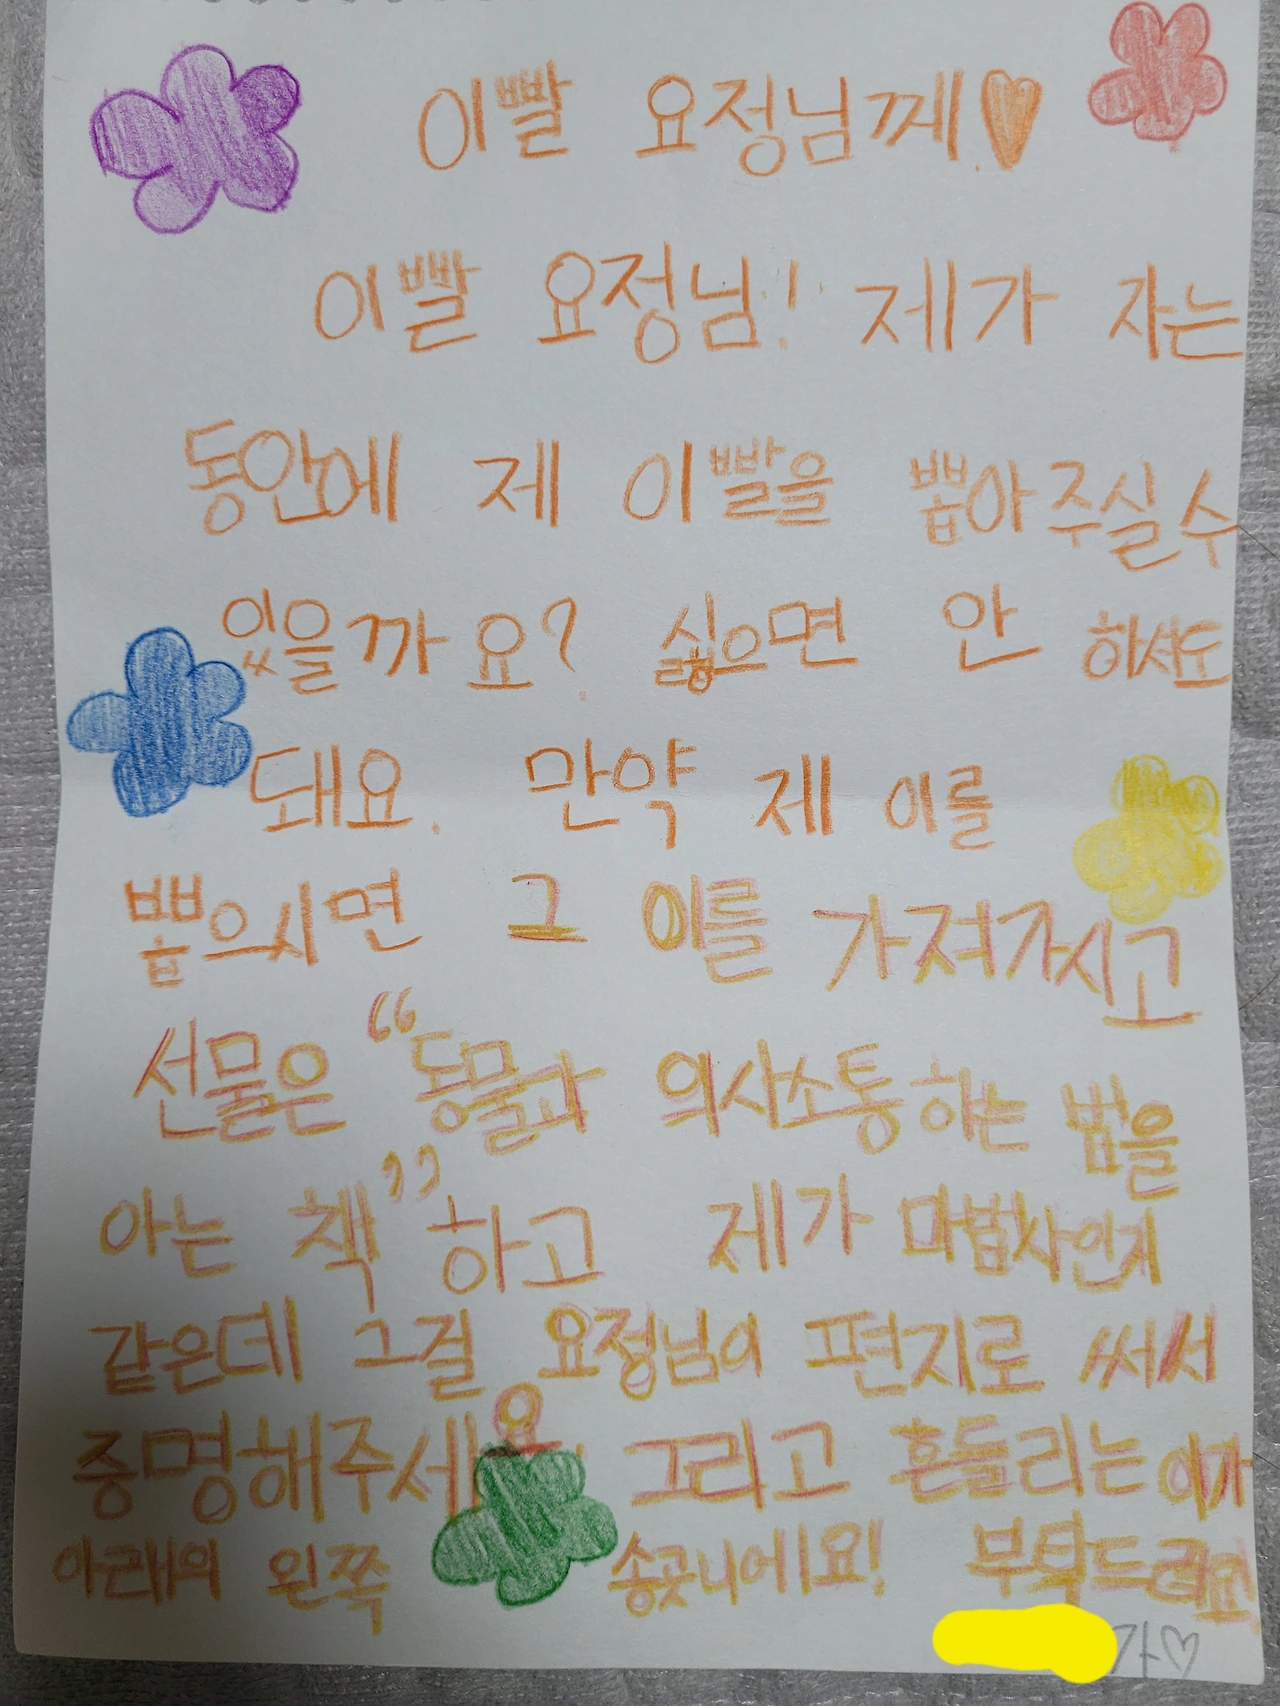 이빨 요정님께♡
이빨 요정님! 제가 자는
동안에 제 이빨을 뽑아주실 수
있을까요? 싫으면 안 하셔도
돼요. 만약 제 이를
뽑으시면 그 이를 가져가시고
선물은 "동물과 의사소통하는 법을
아는 책"하고 제가 마법사인지
같은데 그걸 요정님의 편지로 써서
증명해주세요. 그리고 흔들리는 이가
아래의 왼쪽 송곳니에요! 부탁드려요
가♡